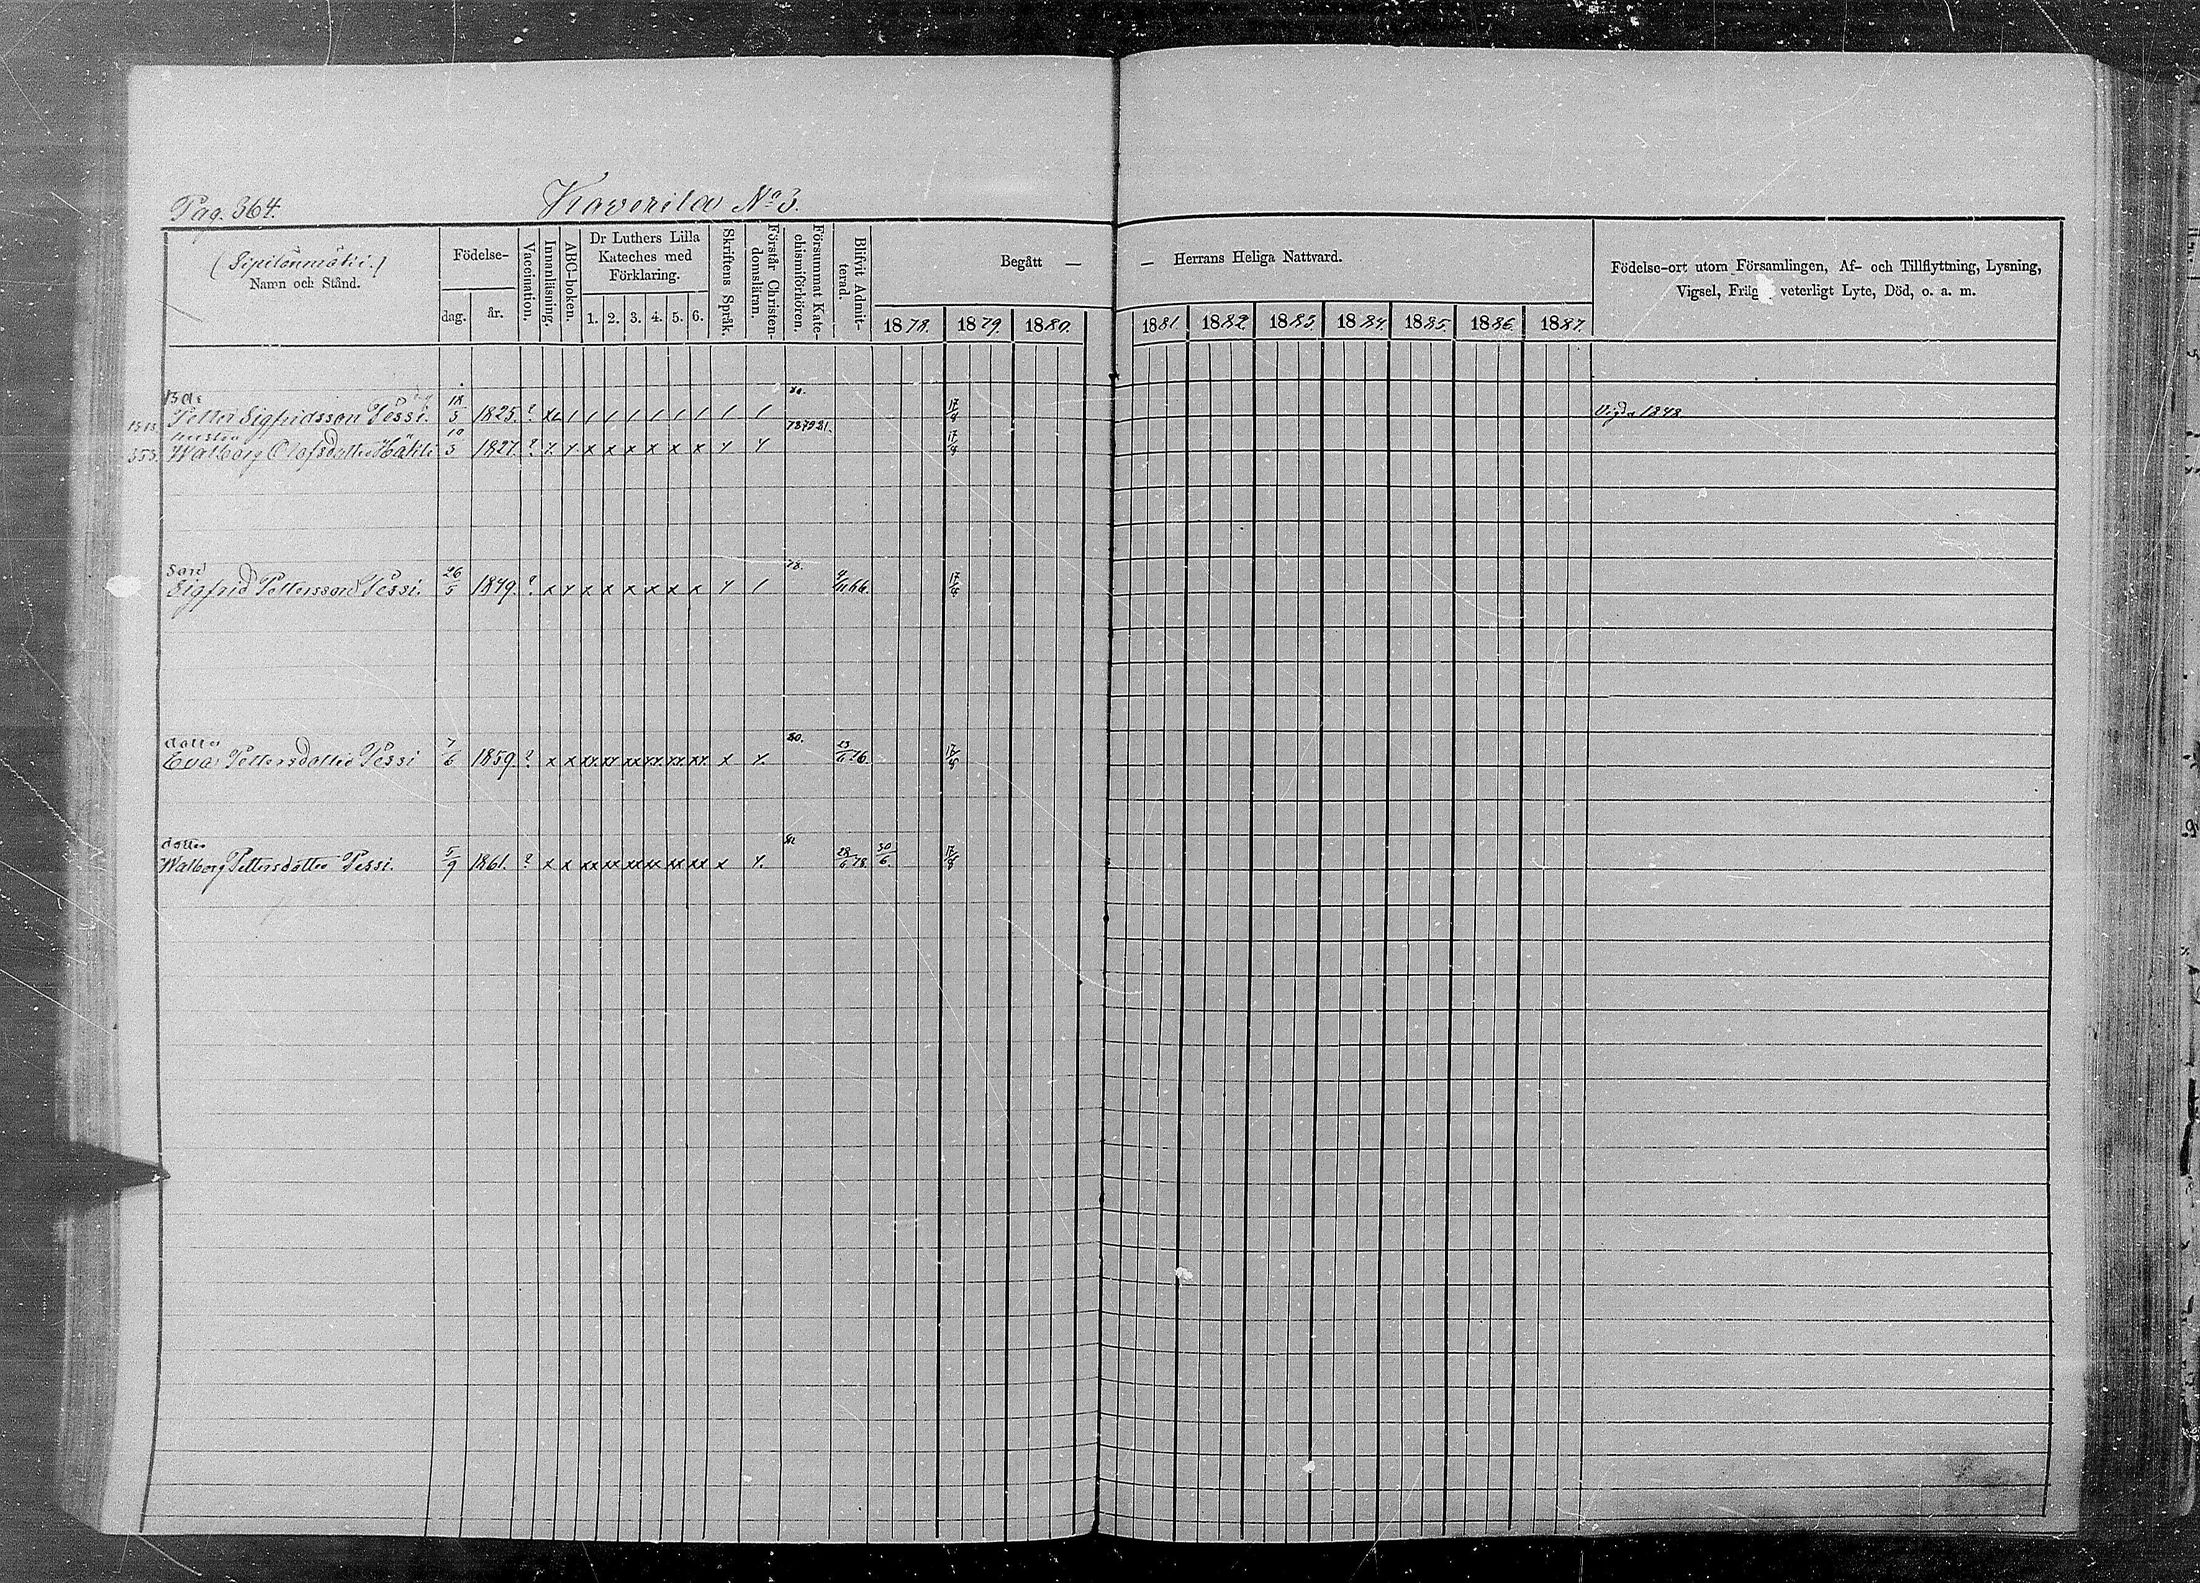 Pag. 364. Kaverila No 3.
(Sipilänmäki.)
Namn och Stånd.
Födelse-
dag. år.
Vaccination.
Innanläsning.
ABC-boken.
Dr Luthers Lilla
Kateches med
Förklaring.
1. 2. 3. 4. 5. 6.
Skriftens Språk.
Förstår Christen-
domsläran.
Försummat Kate-
chismiförhören.
Blifvit Admit-
terad.
Begått —
1878. 1879. 1880.
— Herrans Heliga Nattvard.
1881. 1882. 1883. 1884. 1885. 1886. 1887.
Födelse-ort utom Församlingen, Af- och Tillflyttning, Lysning,
Vigsel, Fräg veterligt Lyte, Död, o. a. m.
80.
Petter Sigfridsson Pessi. 18/3 1825. ? / / / / / / / / / 17/8 Vigda 1848
hustru 787981.
353. Walborg Olofsdotter 10/3 1827. ? x x x x x x x x x x 17/8
Son 78.
Sigfrid Pettersson Pessi. 26/5 1849. ? x x x x x x x x x / 66. 17/8
dotter 80.
Eva Pettersdotter Pessi 7/6 1859. ? x x xx xx xx xx xx xx x x. 76. 17/8
dotter
Walborg Pettersdotter Pessi. 5/9 1861. ? x x xx xx xx xx xx xx x x. 28/6 78. 30/6. 17/8